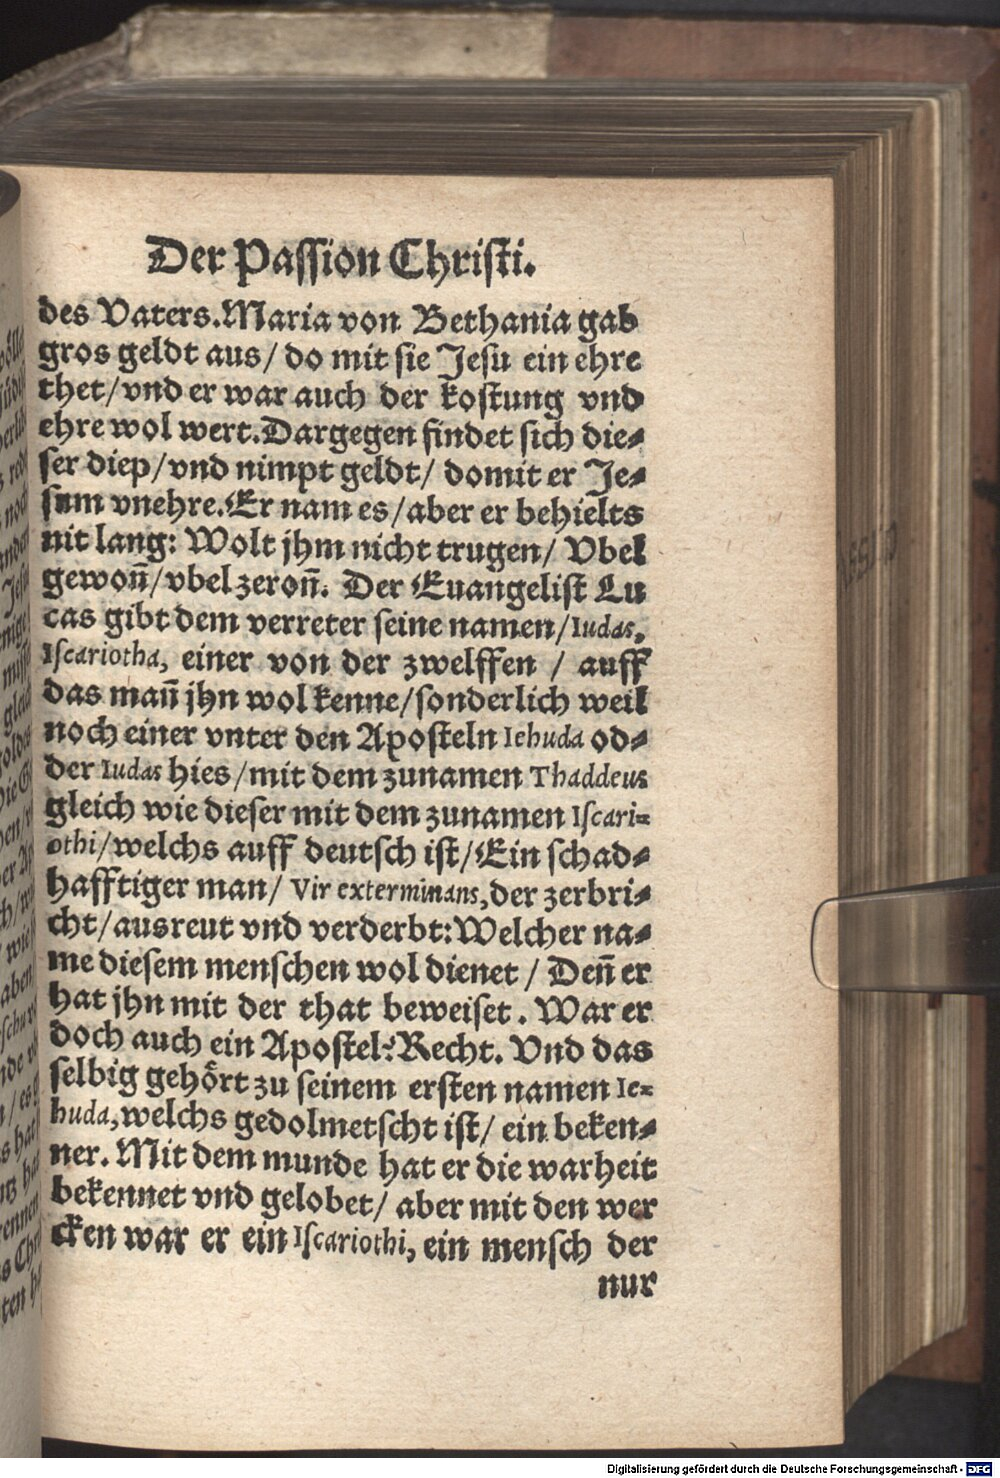 Der Passion Christi.
des Vaters. Maria von Bethania gab
gros geldt aus/ do mit sie Jesu ein ehre
thet/ vnd er war auch der kostung vnd
ehre wol wert. Dargegen findet sich die⸗
ser diep/ vnd nimpt geldt/ domit er Je⸗
sum vnehre. Er nam es/ aber er behielts
nit lang: Wolt jhm nicht trugen/ Vbel
gewon̄/ vbel zeron̄. Der Euangelist Lu
cas gibt dem verreter seine namen/ Iudas,
Iscariotha, einer von der zwelffen / auff
das man̄ jhn wol kenne/ sonderlich weil
noch einer vnter den Aposteln Iehuda od⸗
der Iudas hies/ mit dem zunamen Thaddeus
gleich wie dieser mit dem zunamen Iscari⸗
othi/ welchs auff deutsch ist/ Ein schad⸗
hafftiger man/ Vir exterminans, der zerbri⸗
cht/ ausreut vnd verderbt: Welcher na⸗
me diesem menschen wol dienet / Den̄ er
hat jhn mit der that beweiset. War er
doch auch ein Apostel? Recht. Vnd das
selbig gehört zu seinem ersten namen Ie⸗
huda, welchs gedolmetscht ist/ ein beken⸗
ner. Mit dem munde hat er die warheit
bekennet vnd gelobet/ aber mit den wer
cken war er ein Iscariothi, ein mensch der
nur
Digitalisierung gefördert durch die Deutsche Forschungsgemeinschaft - DFG